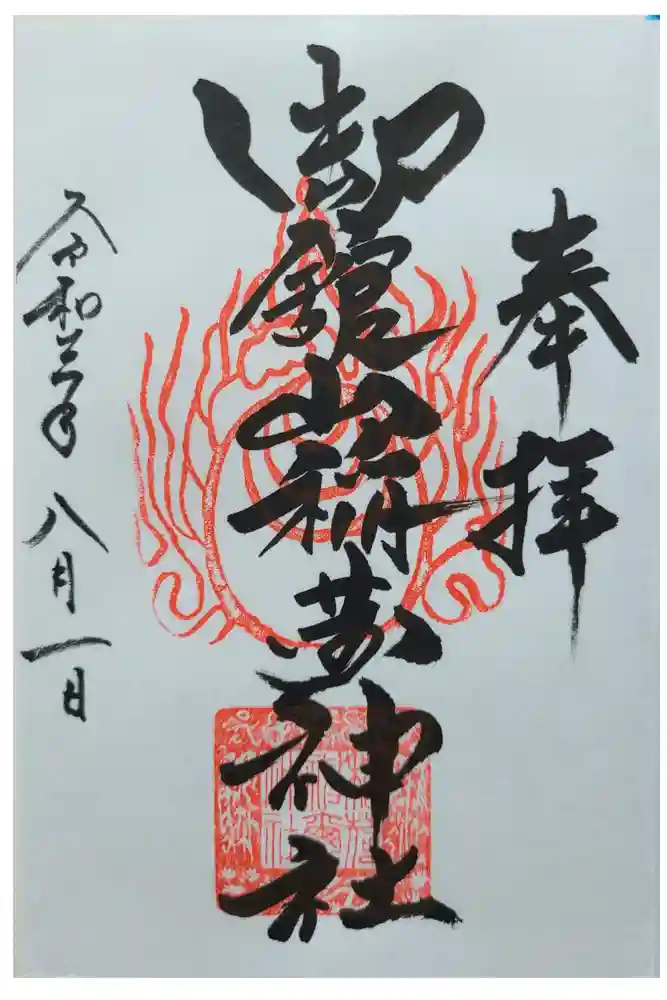 奉拝
御館山稲荷神社
令和三年八月一日